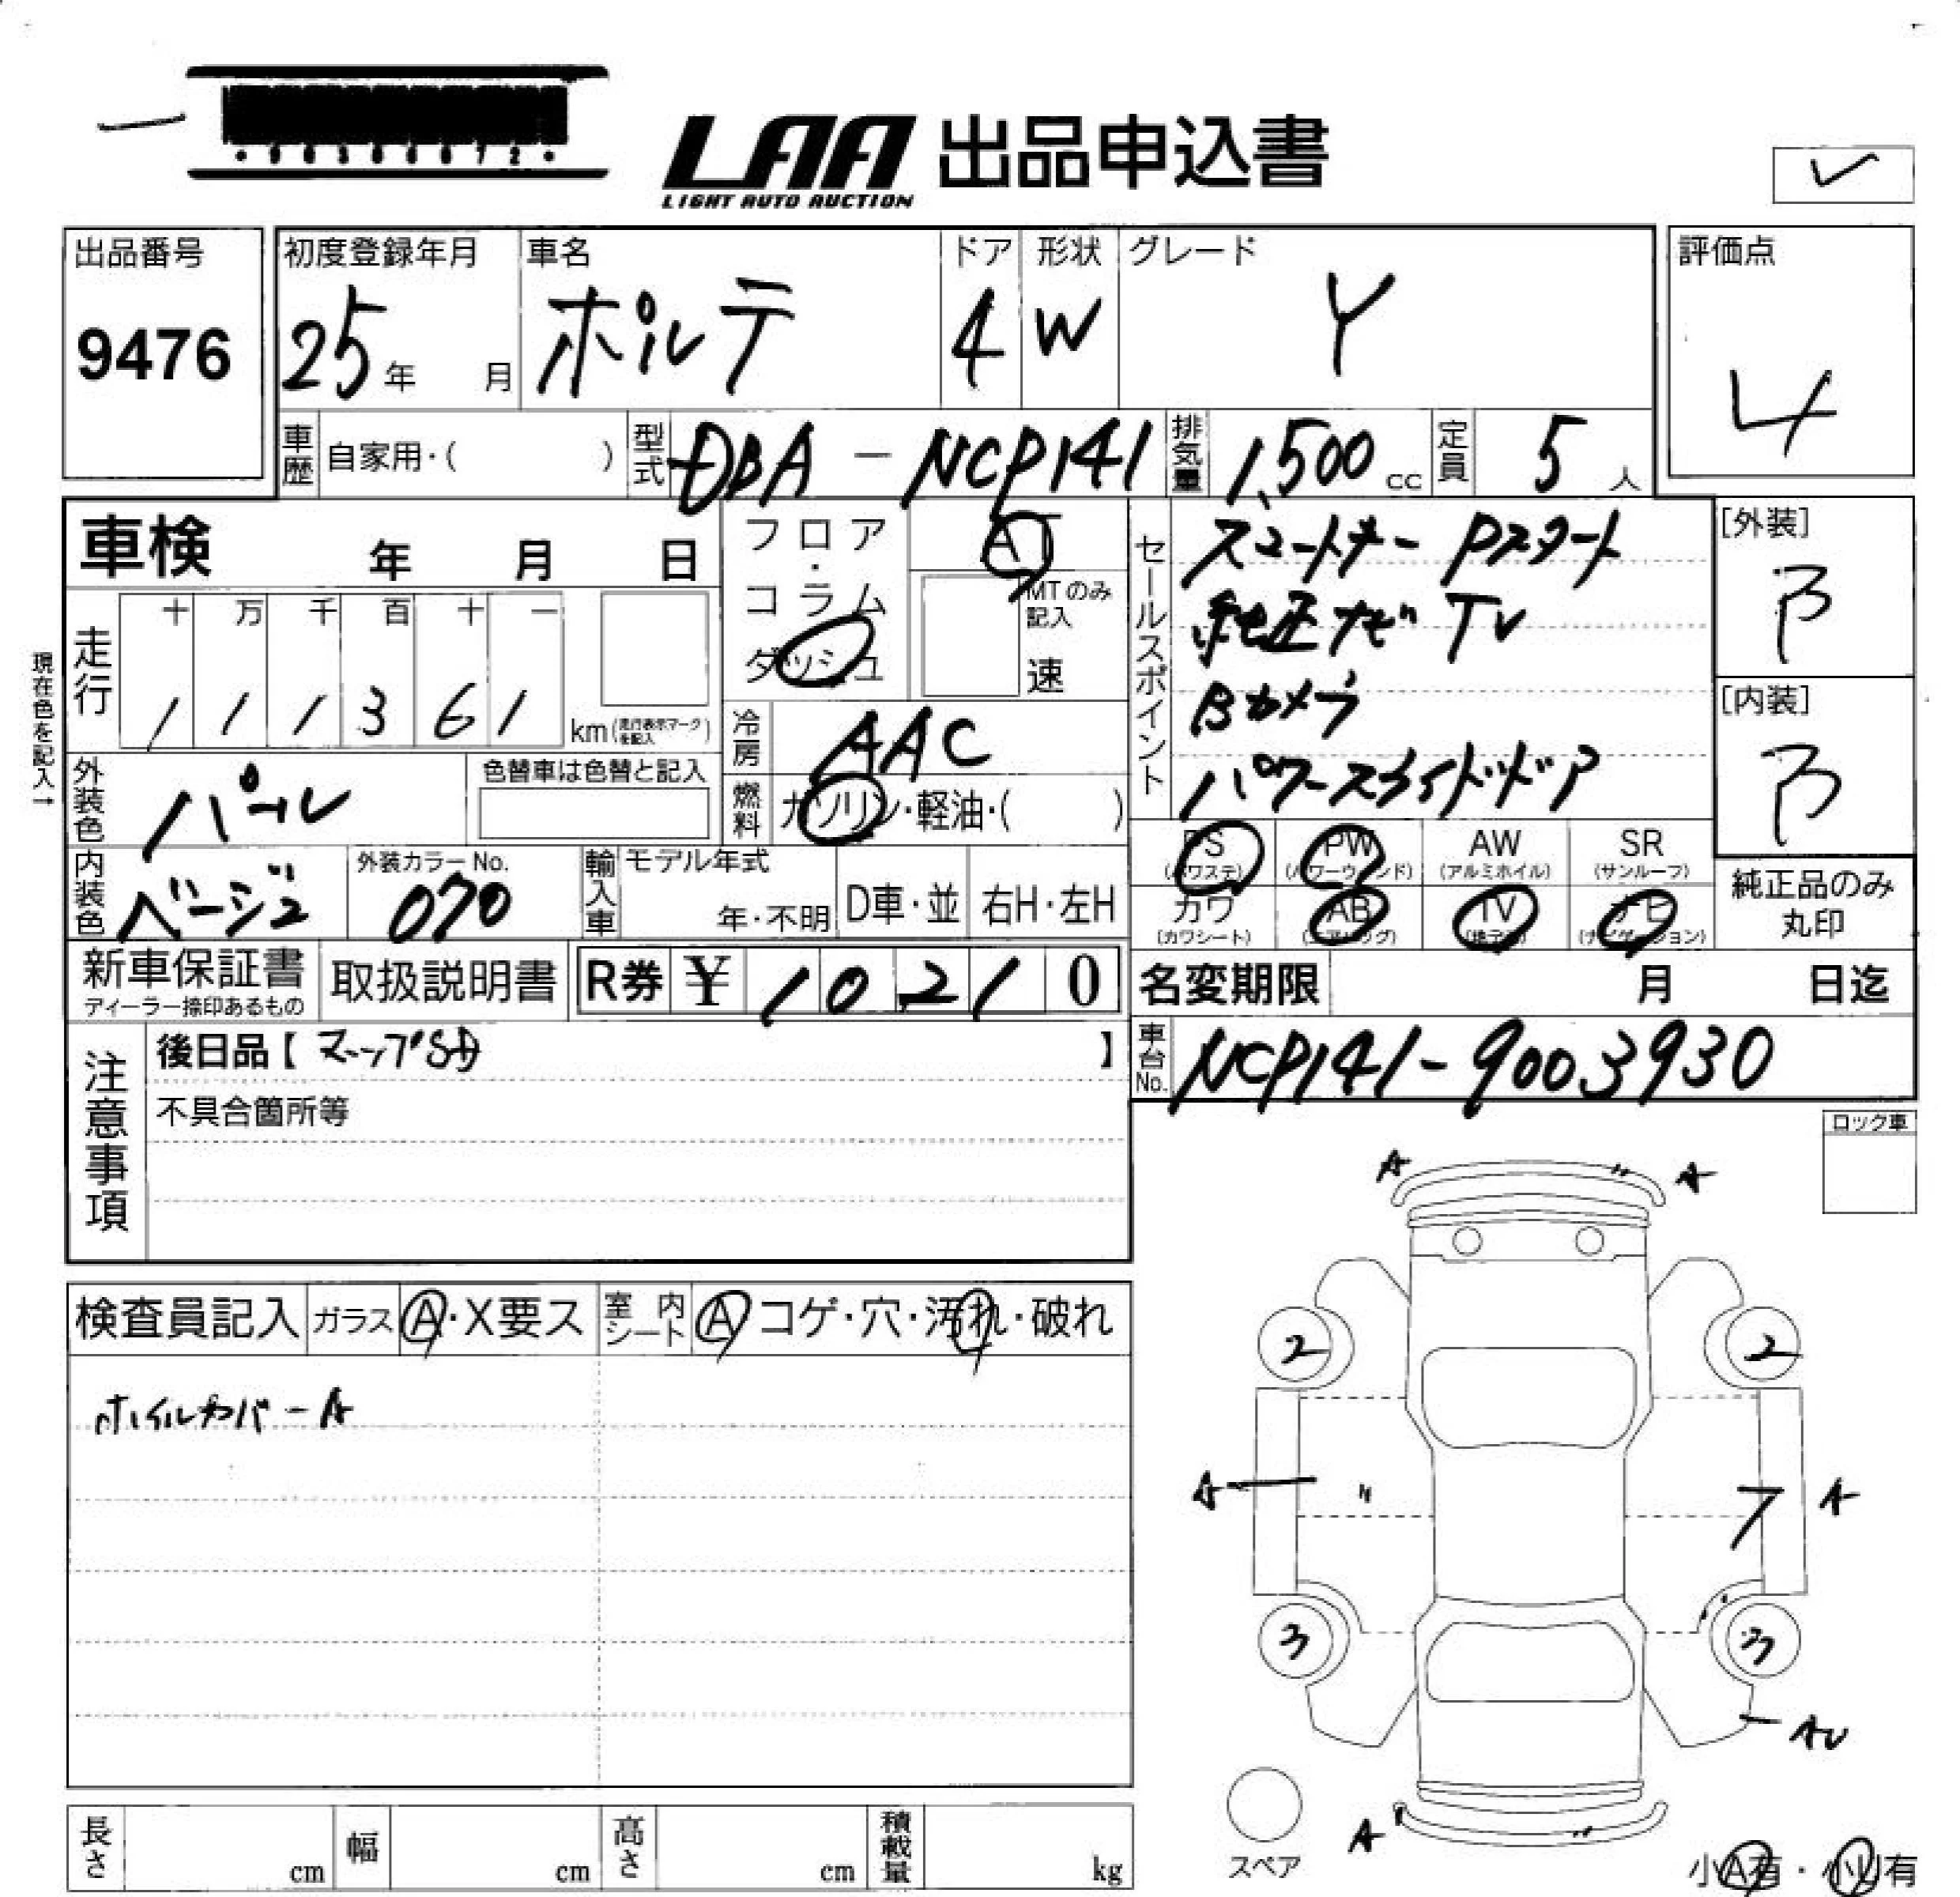 LAA 出品申込書
LIGHT AUTO AUCTION
出品番号
9476
初度登録年月
25年 月
車名
ポルテ
ドア
4
形状
W
グレード
Y
評価点
4
車歴 自家用・( )
型式 DBA-NCP141
排気量 1,500cc
定員 5人
車検 年 月 日
フロア・コラム
ダッシュ
AT
MTのみ記入
速
現在色を記入→
走行
十 万 千 百 十 一
1 1 1 3 6 1 km(走行表示マークを記入)
冷房 AAC
燃料 ガソリン・軽油・( )
外装色 パール
色替車は色替と記入
内装色 ベージュ
外装カラーNo. 070
輸入車 モデル年式 年・不明 D車・並 右H・左H
セールスポイント
スマートキー Pスタート
純正ナビ TV
Bカメラ
パワースライドドア
[外装]
B
[内装]
B
PS (パワステ) PW (パワーウィンド) AW (アルミホイル) SR (サンルーフ)
カワ (カワシート) AB (エアバッグ) TV (地デジ) ナビ (ナビゲーション)
純正品のみ丸印
新車保証書 ディーラー捺印あるもの
取扱説明書
R券 ¥ 1 0 2 1 0
名変期限 月 日迄
車台No. NCP141-9003930
注意事項
後日品【 マップSD 】
不具合箇所等
ロック車
検査員記入 ガラス A・X要ス 室内シート A コゲ・穴・汚れ・破れ
ホイルカバーA
A A
2 2
A 〃 7 A
3 3
AU
A
スペア
小A有・小U有
長さ cm 幅 cm 高さ cm 積載量 kg